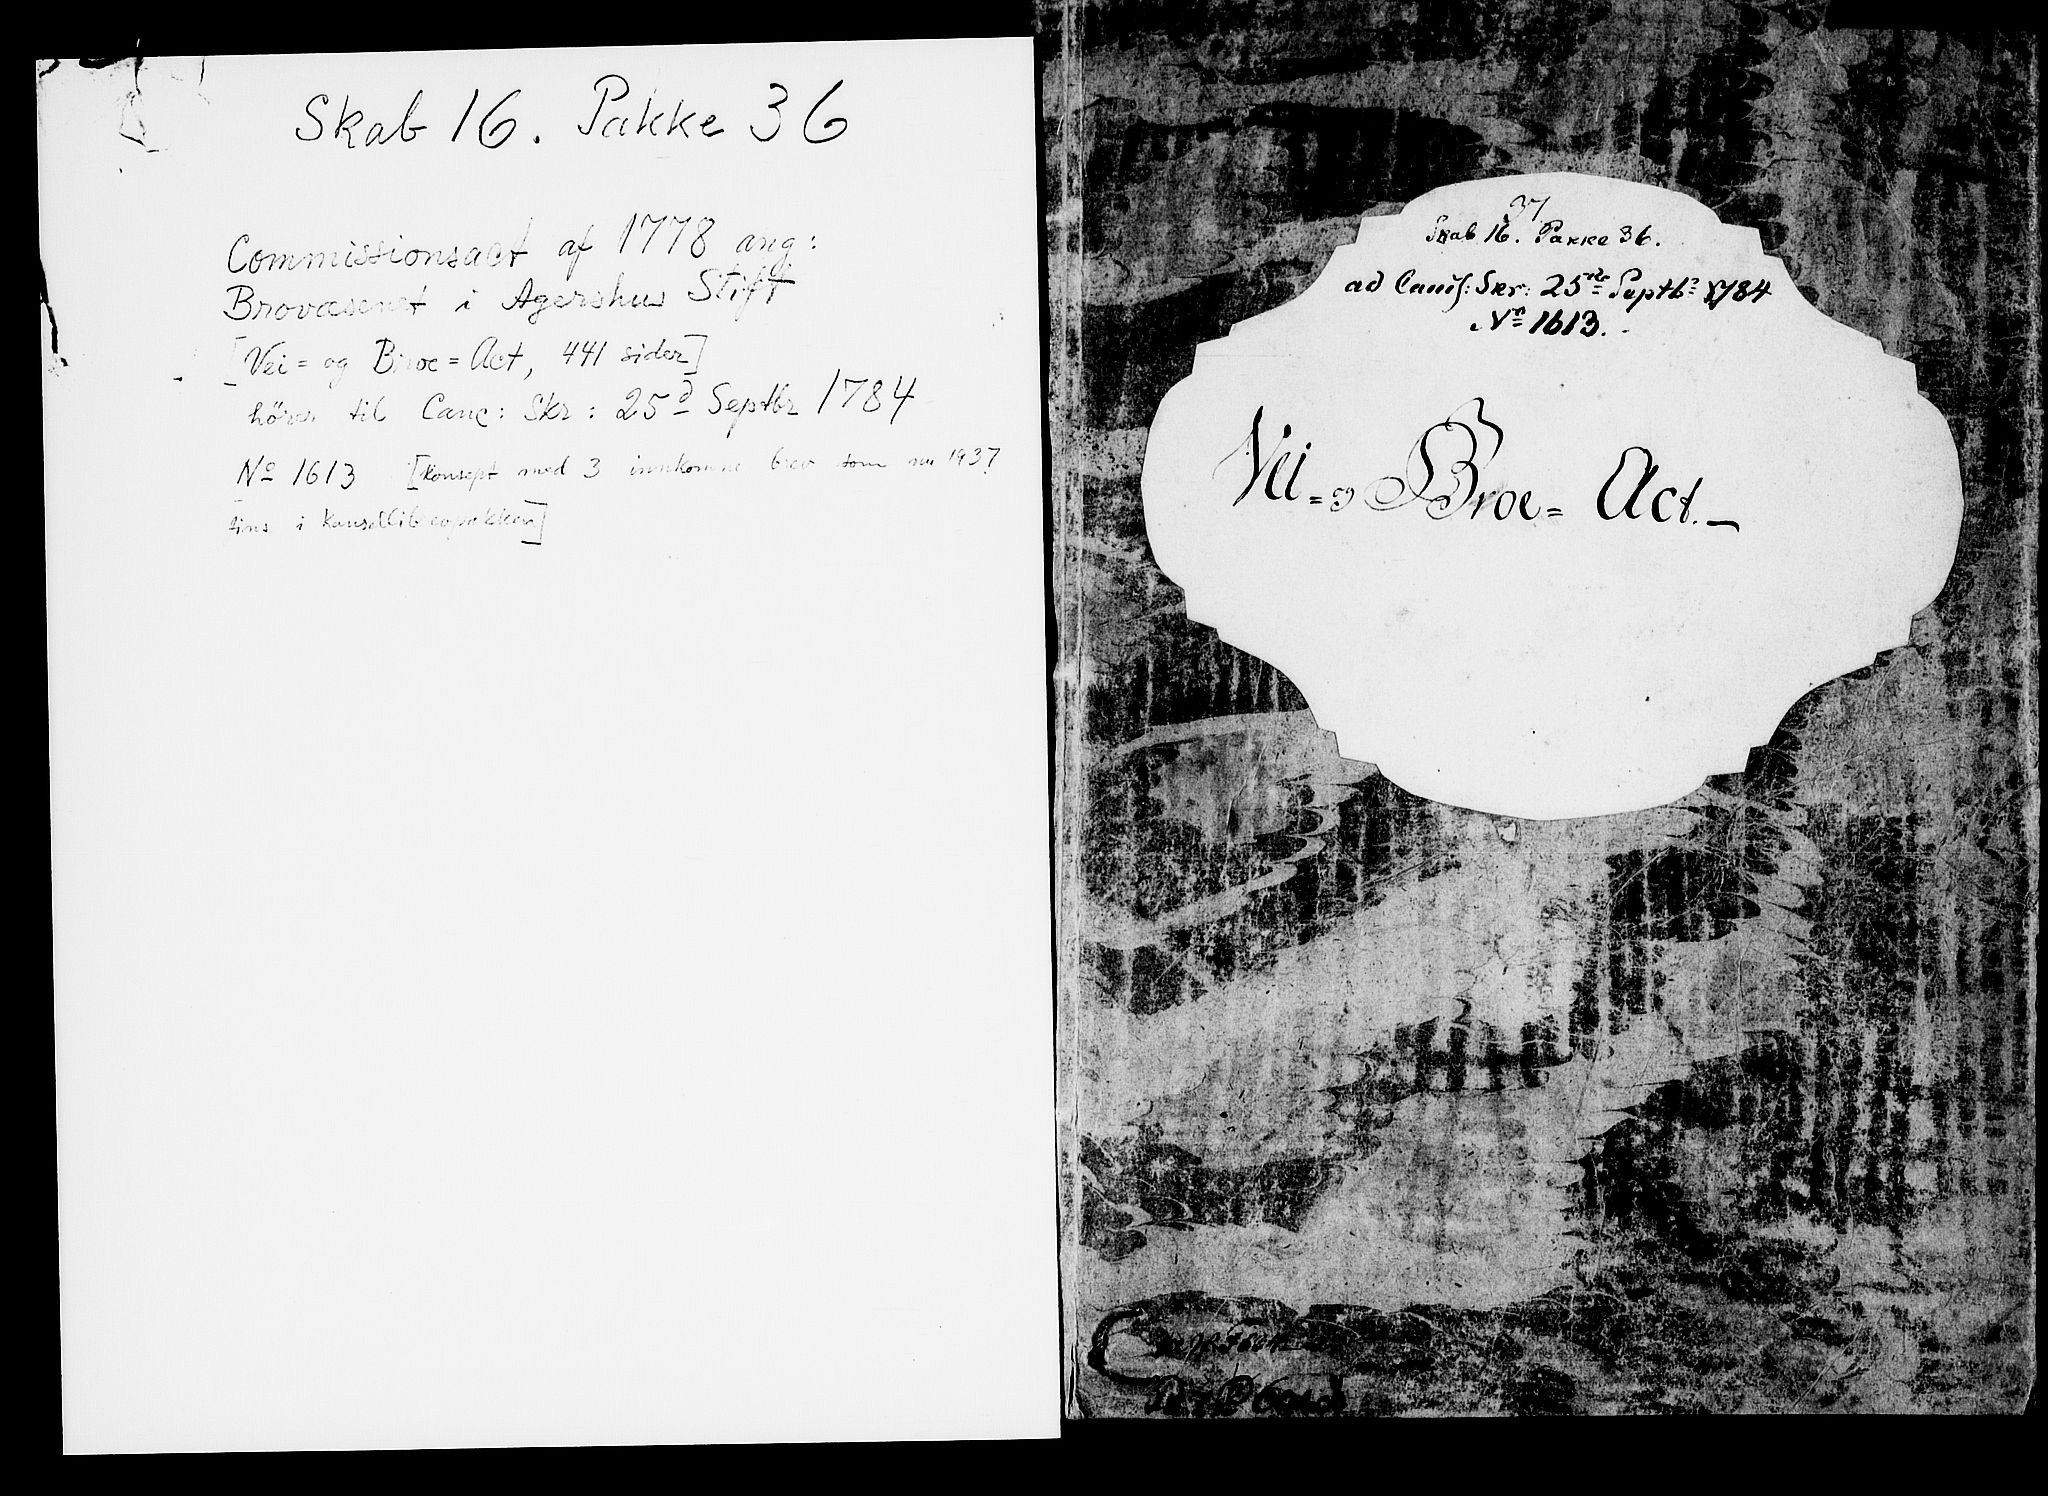 Skab 16. Pakke 36
Commissionsact af 1778 ang:
Brovæsenet i Agershus Stift
[Vei= og Broe=Act, 441 sider]
hörer til Canc: Skr: 25d Septbr 1784
No 1613 [Konsept med 3 innkomne brev som nu 1937
fins i
37
Skab 16. Pakke 36.
ad Skr: 25de Septbr 1784
Nr 1613.
Vei= og Broe= Act.—